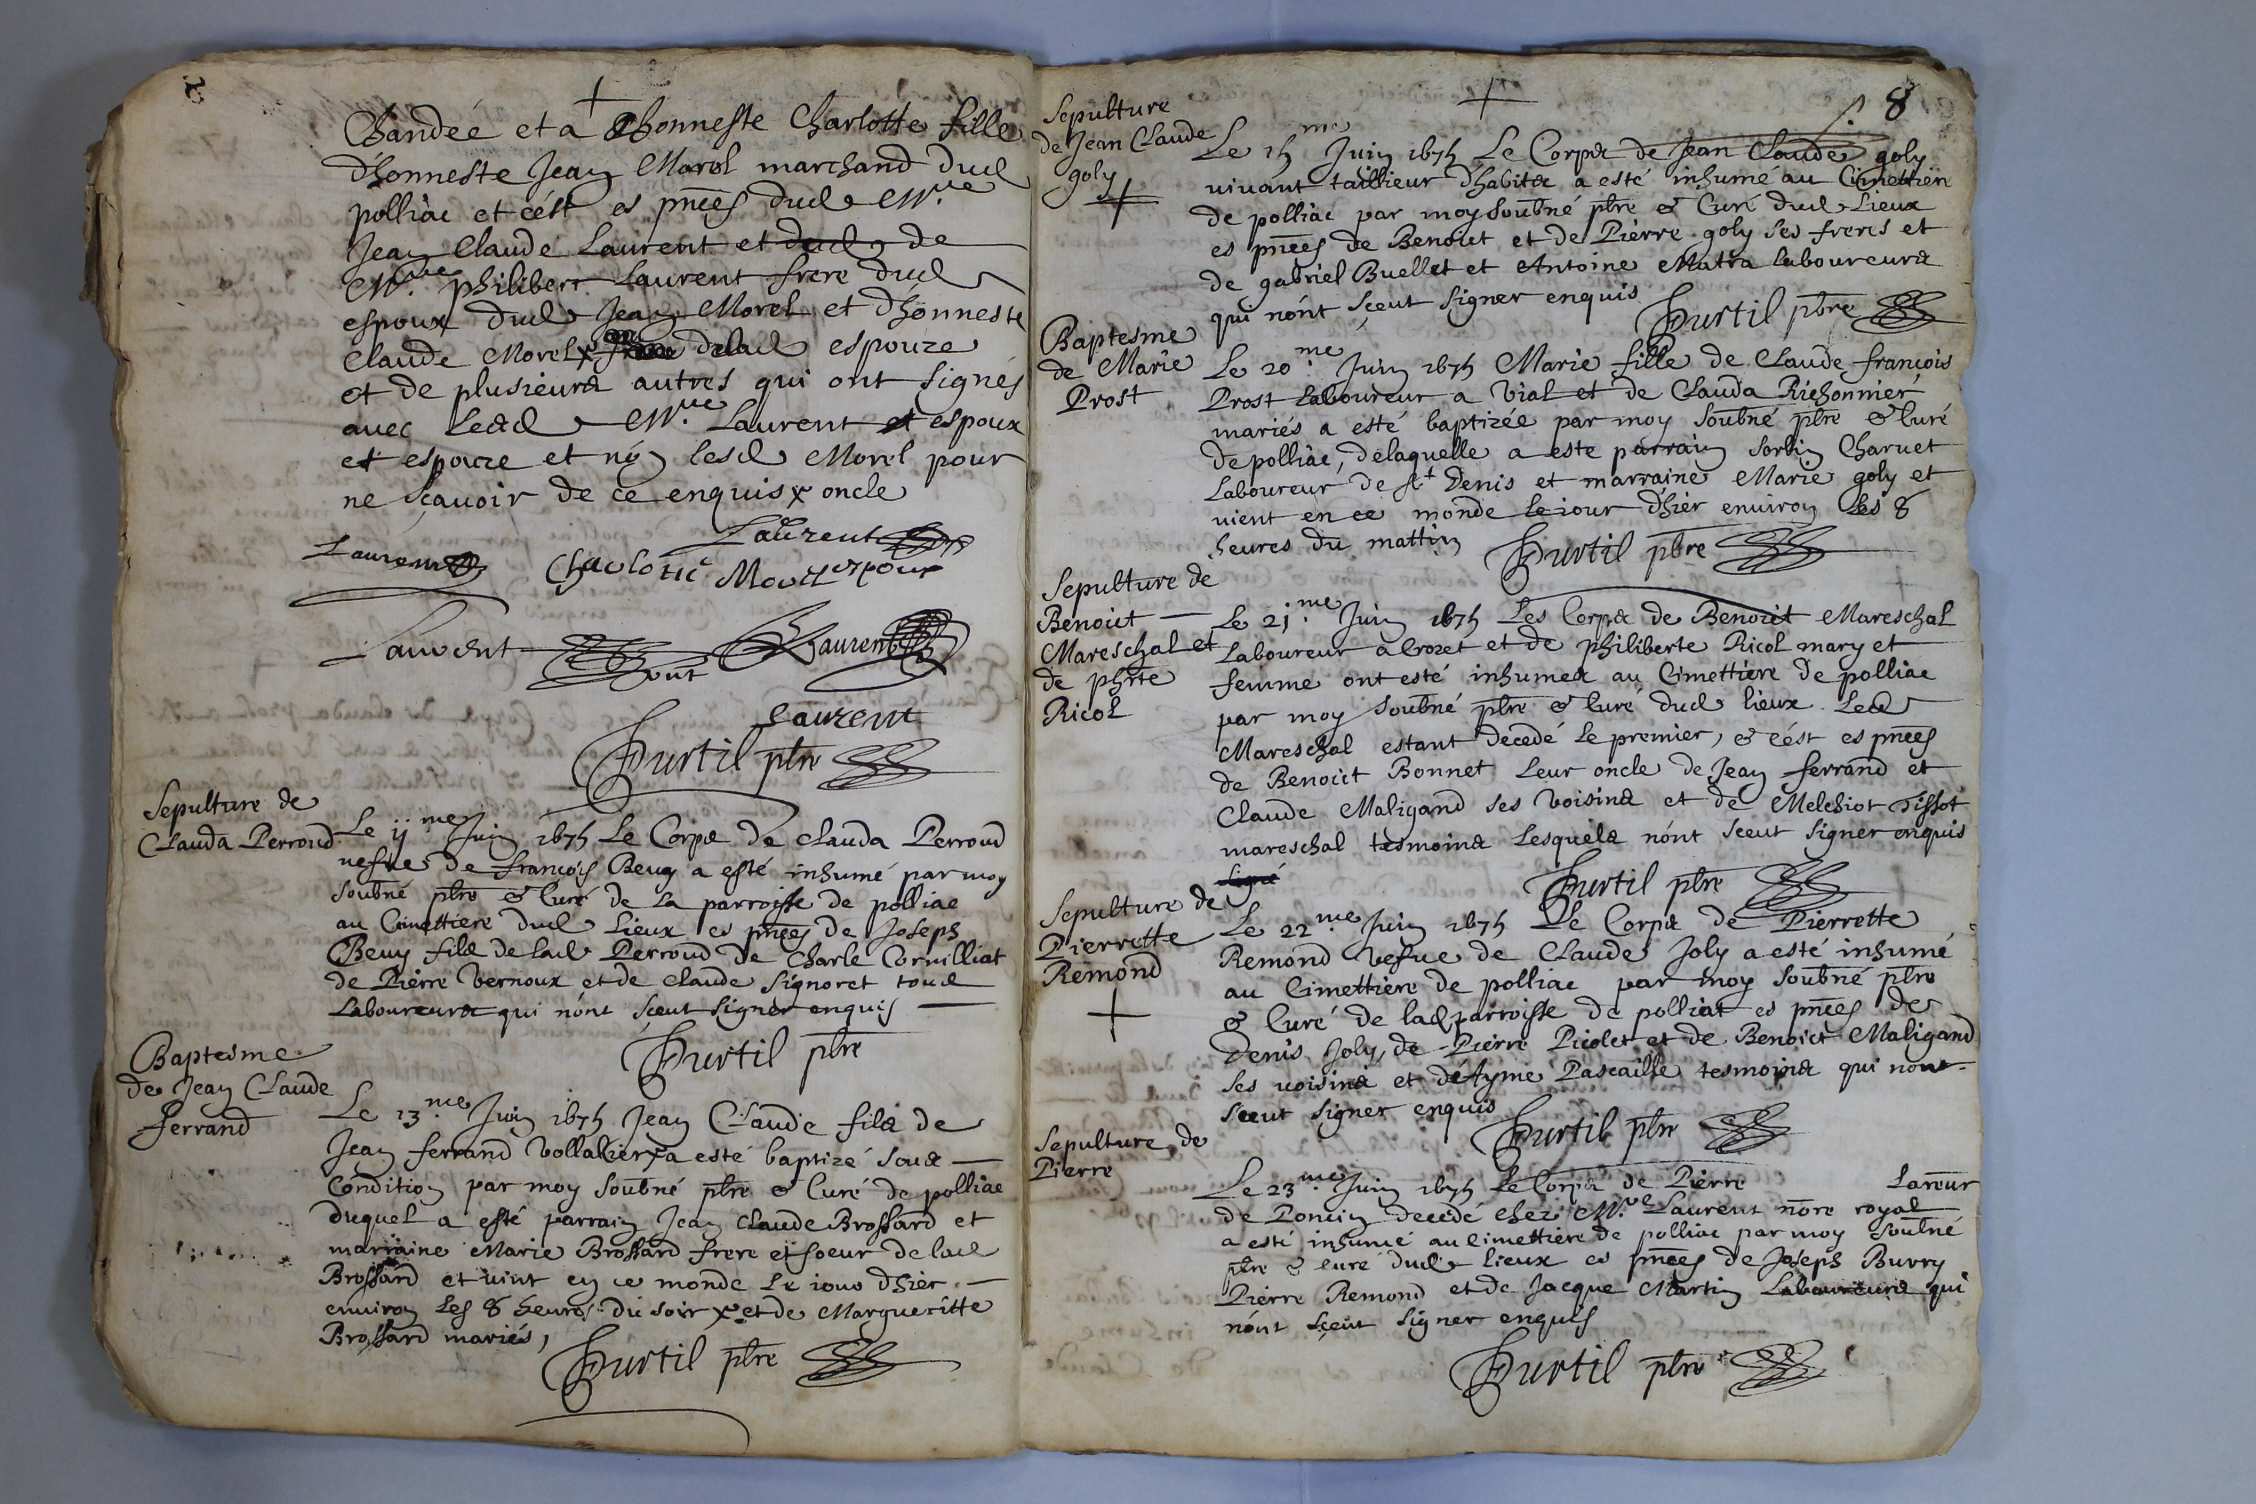 Chandeé et a dhonneste Charlotte fille
dhonneste Jean Morel marchand dud
polliac et cést es pn̄ces dud Mr.
Jean Claude Laurent et de
Mr. philibert Laurent frere dud
espoux dud Jean Morel et dhonneste
Claude Morel x delad espouze
et de plusieurs autres qui ont signés
avec Lesd Mr. Laurent et espoux
et espouze et nón lesd Morel pour
ne sçavoir de ce enquis x oncle
Laurent
Laurent
Charlotte Morel
Laurent
Laurent
Laurent
Hurtil pbre
Sepulture de
Clauda Perroud
Le ijme Juin 1675 Le Corps de Clauda Perroud
vefve de françois Beuy a esté inhumé par moy
soubn̄é pbr̄e & Curé de La parroisse de polliac
au Cimettiere dud Lieux es pn̄ces de Joseph
Beuy fils de lad Perroud de Charle Cornilliat
de Pierre Vernoux et de Claude Signoret tous
Laboureurs qui nónt sceut signer enquis
Hurtil pbre
Baptesme
de Jean Claude
ferrand
Le 13me Juin 1675 Jean Claude fils de
Jean ferrand Vollatier x a esté baptizé sous
Condition par moy soubn̄é pbr̄e & Curé de polliac
duquel a esté parrain Jean Claude Brossard et
marraine Marie Brossard frere et soeur de lad
Brossard et vint en ce monde Le iour dhier
environ Les 8 heures du soir x et de Margueritte
Brossard mariés,
Hurtil pbre
8
Sepulture
de Jean Claude
goly
Le 15me Juin 1675 Le Corps de Jean Claude goly
vivant taillieur dhabits a esté inhumé au Cimettiere
de polliac par moy soubn̄é pbr̄e & Curé dud Lieux
es pn̄ces de Benoict et de Pierre goly ses freres et
de gabriel Buellet et Antoine Matra laboureurs
qui nónt sceut signer enquis
Hurtil pbre
Baptesme
de Marie
Prost
Le 20me Juin 1675 Marie fille de Claude françois
Prost Laboureur a Vial et de Clauda Richonnier
mariés a esté baptizée par moy soubn̄é pbr̄e & Curé
de polliac, de laquelle a este parrain Sorlin Charvet
Laboureur de St Denis et marraine Marie goly et
vient en ce monde le iour dhier environ Les 8
heures du mattin
Hurtil pbre
Sepulture de
Benoict
Mareschal et
de phīte
Ricol
Le 21me Juin 1675 Les Corps de Benoict Mareschal
Laboureur a Crozet et de philiberte Ricol mary et
femme ont esté inhumes au Cimettiere de polliac
par moy soubn̄é pbr̄e & Curé dud lieux. Led
Mareschal estant décedé le premier, & cést es pn̄ces
de Benoict Bonnet Leur oncle de Jean ferrand et
Claude Maligand ses voisins et de Melchiot Tissot
mareschal tesmoins Lesquels nónt sceut signer enquis
signé
Hurtil pbre
Sepulture de
Pierrette
Remond
Le 22me Juin 1675 Le Corps de Pierrette
Remond vefve de Claude Joly a esté inhumé
au Cimettiere de polliac par moy soubn̄é pbr̄e
& Curé de lad parroisse de polliat es pn̄ces de
Denis Joly, de Pierre Picolet et de Benoict Maligand
ses voisins et de Ayme Pascaille tesmoins qui nont
sceut signer enquis
Hurtil pbre
Sepulture de
Pierre
Le 23me Juin 1675 Le Corps de Pierre Lareur
de Poncin decedé chez Mr. Laurent nor̄e royal
a esté inhumé au cimettiere de polliac par moy soubn̄é
pbr̄e & curé dud lieux es pn̄ces de Joseph Buvry
Pierre Remond et de Jacque Martin Laboureurs qui
nónt sceut signer enquis
Hurtil pbre